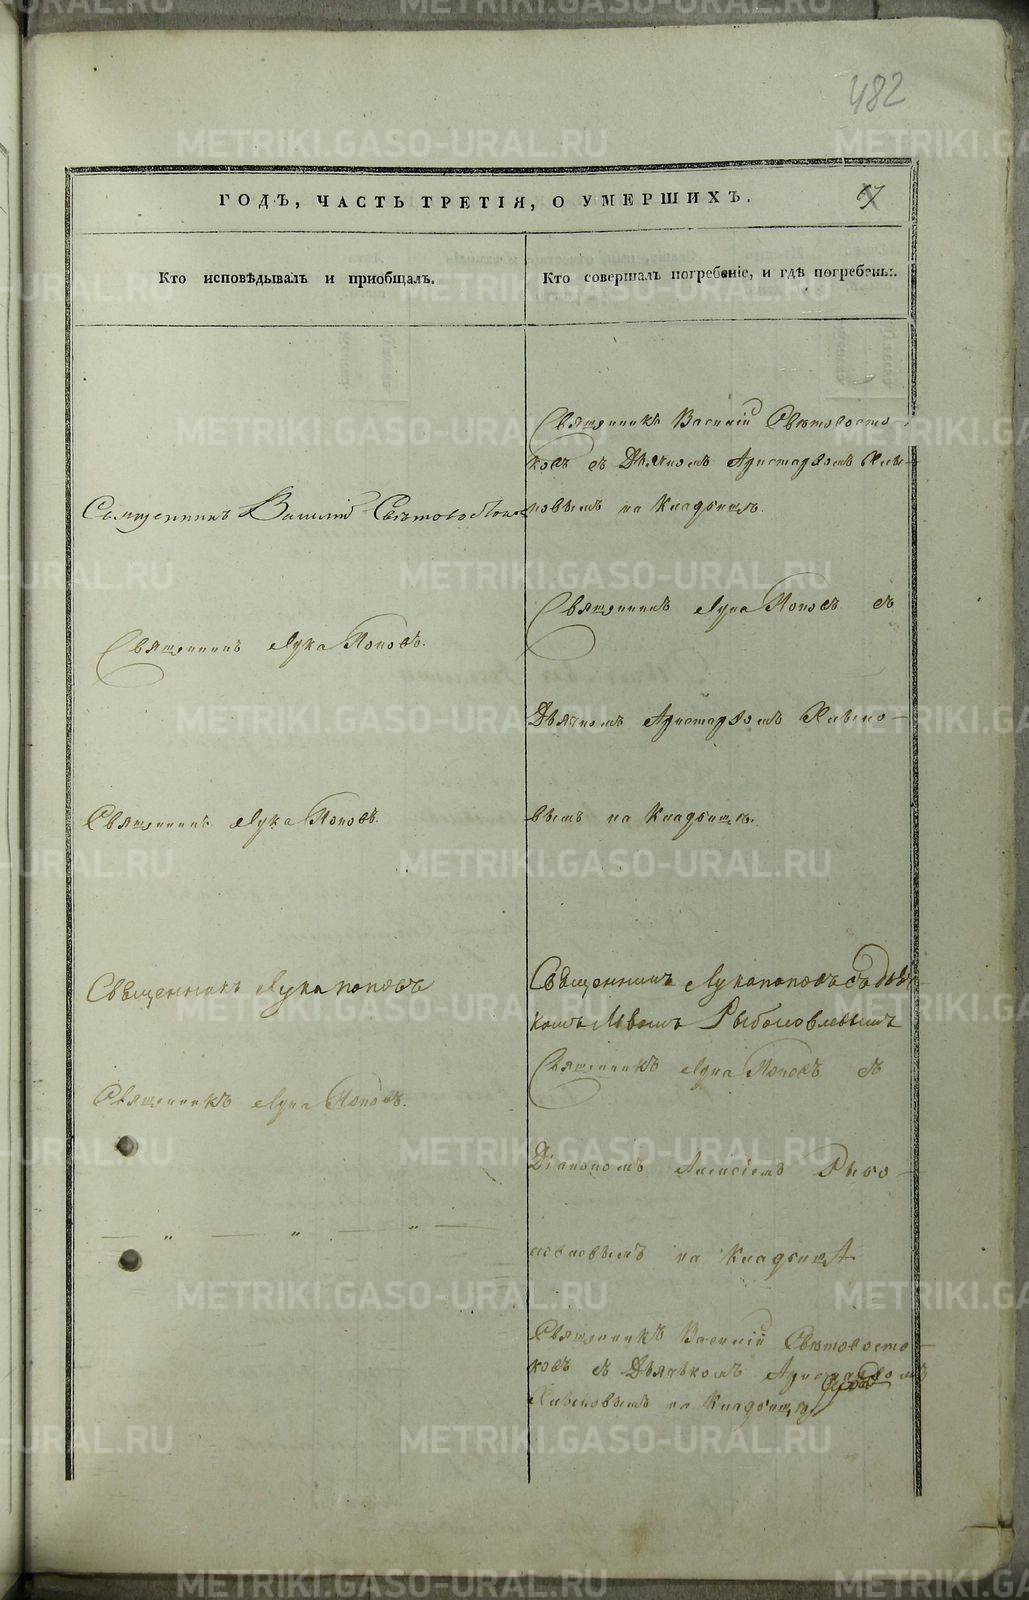 482
ГОДЪ, ЧАСТЬ ТРЕТІЯ, О УМЕРШИХЪ.
67
Кто исповѣдывалъ и пріобщалъ.
Кто совершалъ погребеніе, и гдѣ погребены.
Священникъ Василій Свѣтовостоков
Священникъ Лука Поповъ.
Священникъ Лука Поповъ.
Священникъ Лука поповъ
Священникъ Лука Поповъ.
— „ — „ — „ —
Священникъ Василій Свѣтовосто-
ковъ съ Дьячкомъ Аристархомъ
на Кладбищѣ.
Священникъ Лука Поповъ съ
Дьячкомъ Аристархомъ
на Кладбищѣ.
Священникъ Лука поповъ съ дьяч-
комъ Рыболовлевымъ
Священникъ Лука Поповъ съ
Діакономъ Алексіемъ Рыбо-
ловлевымъ на Кладбищѣ
Священникъ Василій Свѣтовосто-
ковъ съ Дьячкомъ Аристархомъ
на Кладбищѣ
METRIKI.GASO-URAL.RU